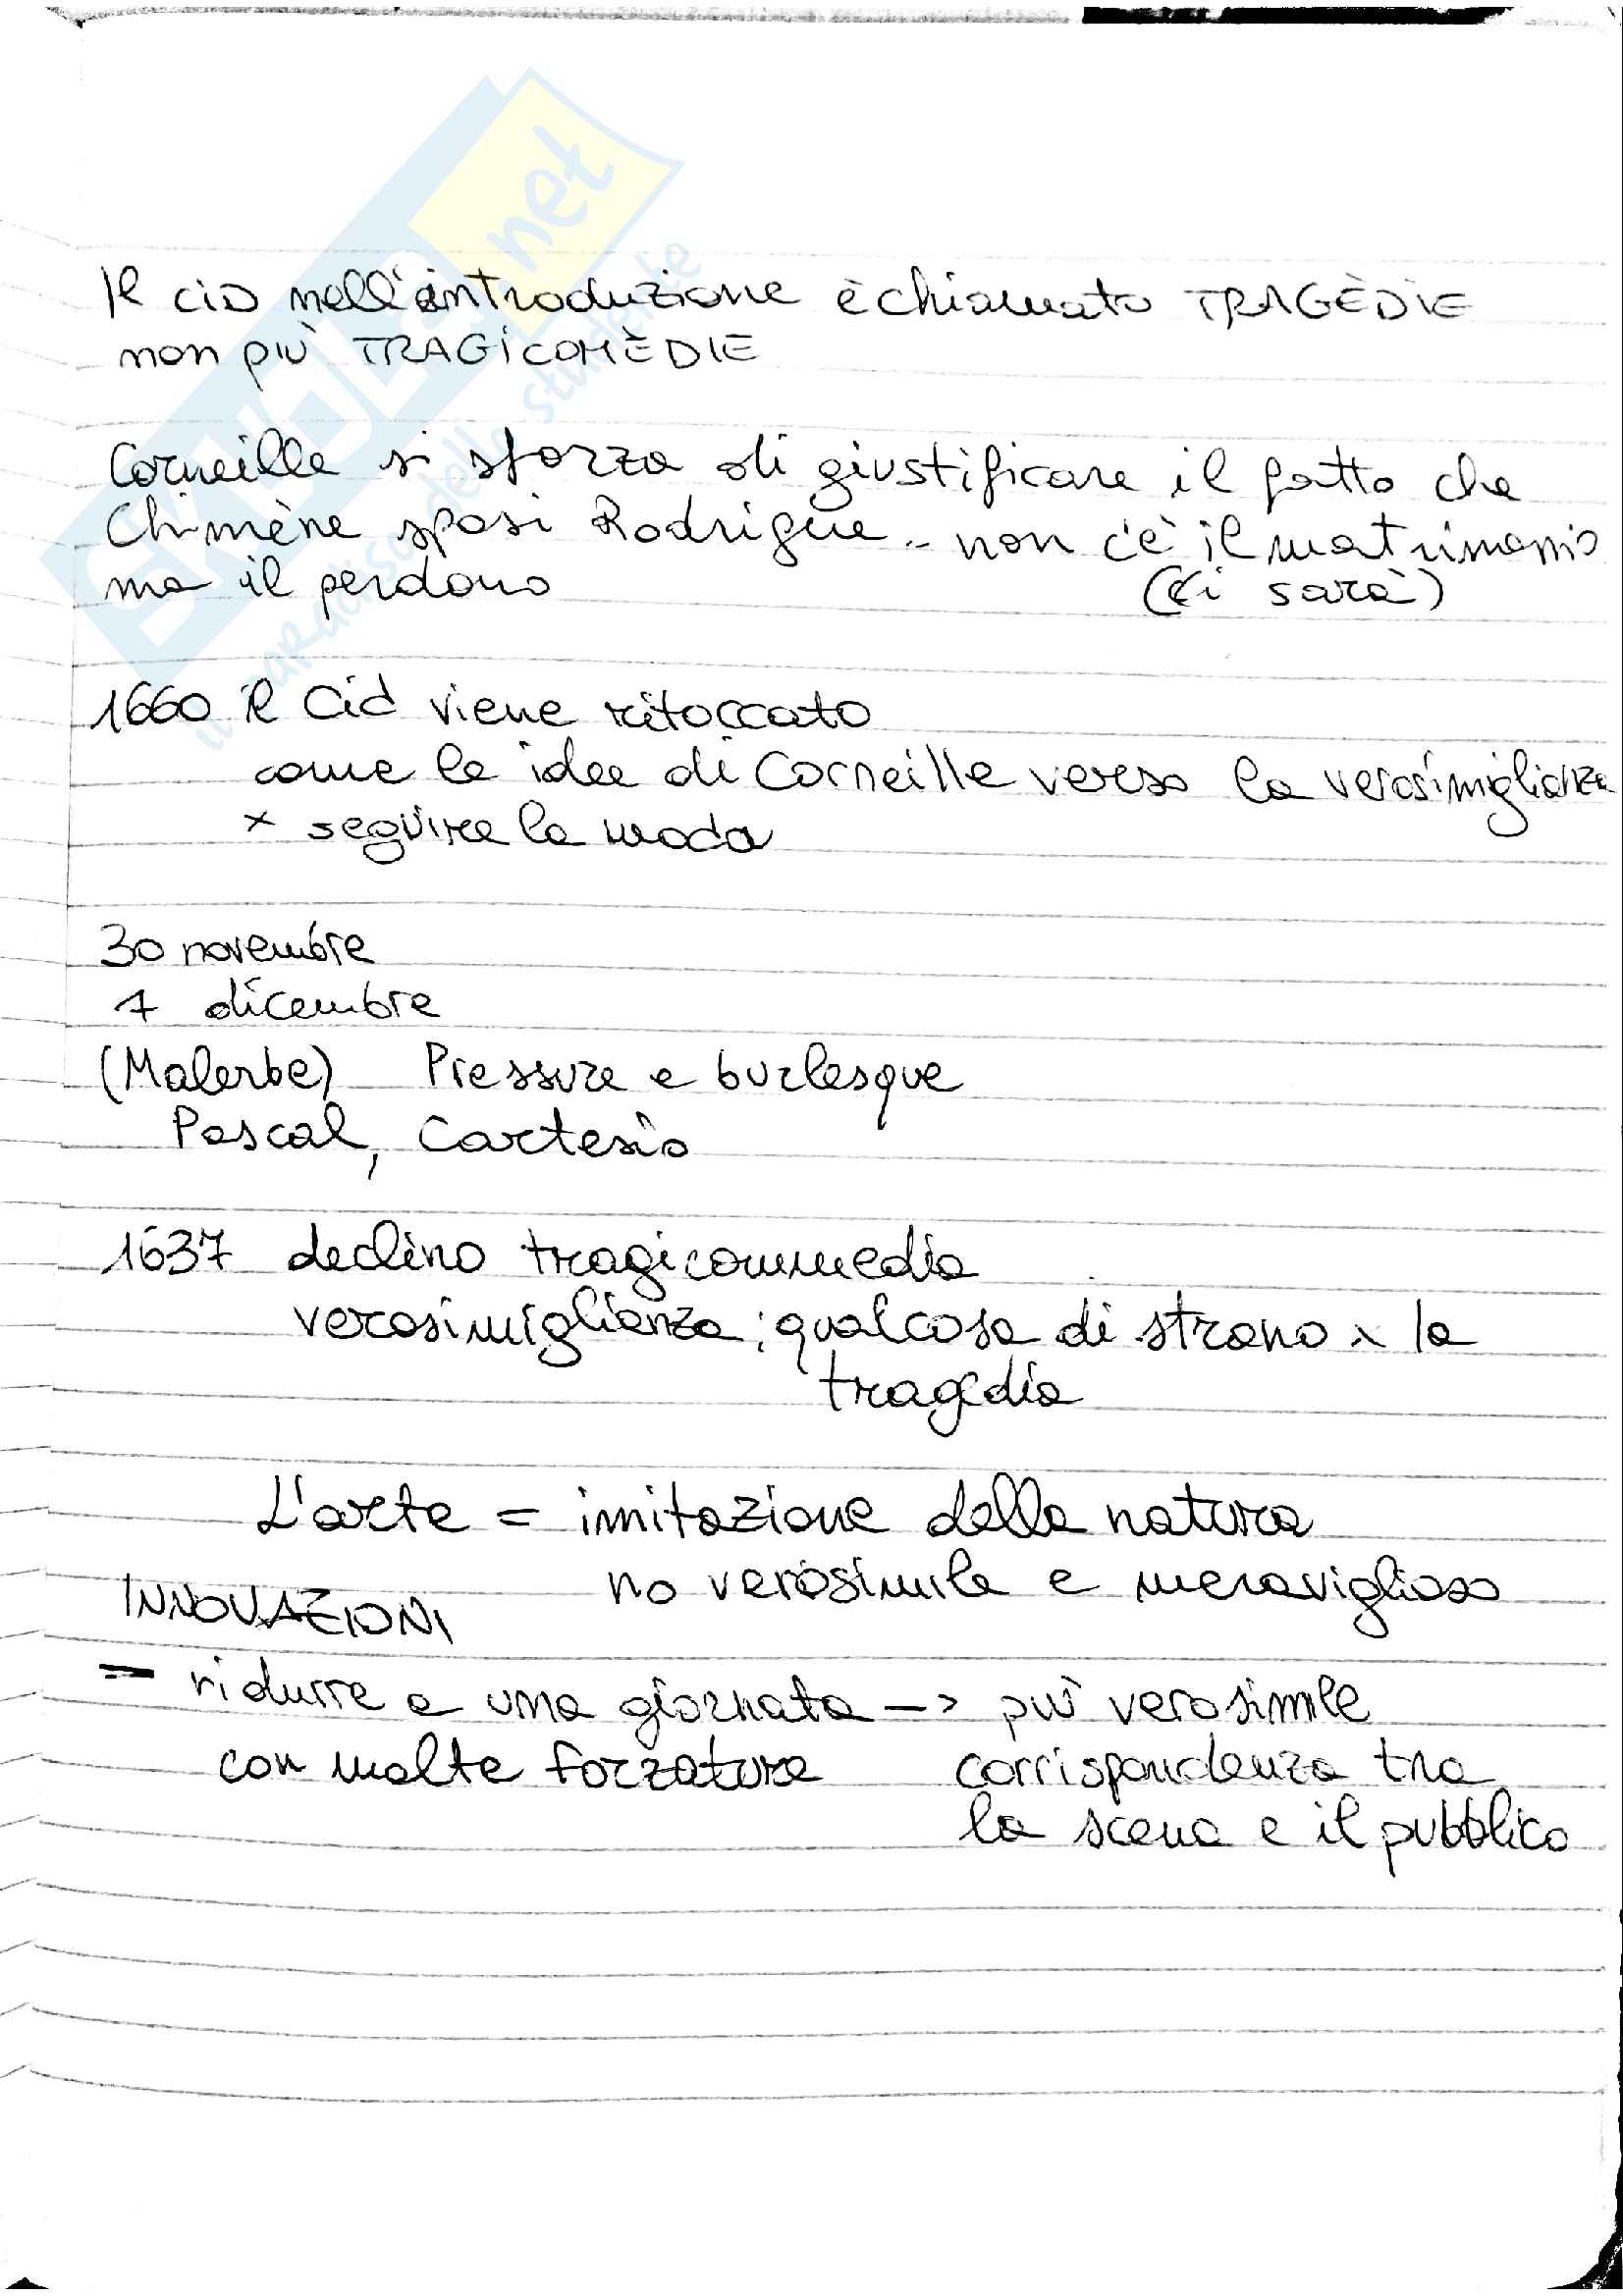 Il CID nell'introduzione è chiamato TRAGÈDIE
non più TRAGICOMÈDIE
Corneille si sforza di giustificare il fatto che
Chimène sposi Rodrigue.. non c'è il matrimonio
ma il perdono (ci sarà)
1660 il Cid viene ritoccato
come le idee di Corneille verso la verosimiglianza
x seguire la moda
30 novembre
7 dicembre
(Malerbe) Pressure e burlesque
Pascal, Cartesio
1637 declino tragicommedia
verosimiglianza: qualcosa di strano x la
tragedia
L'arte = imitazione della natura
no verosimile e meraviglioso
INNOVAZIONI
- ridurre a una giornata -> più verosimile
con molte forzature corrispondenza tra
la scena e il pubblico
SKUOLA.net
il paradiso dello studente